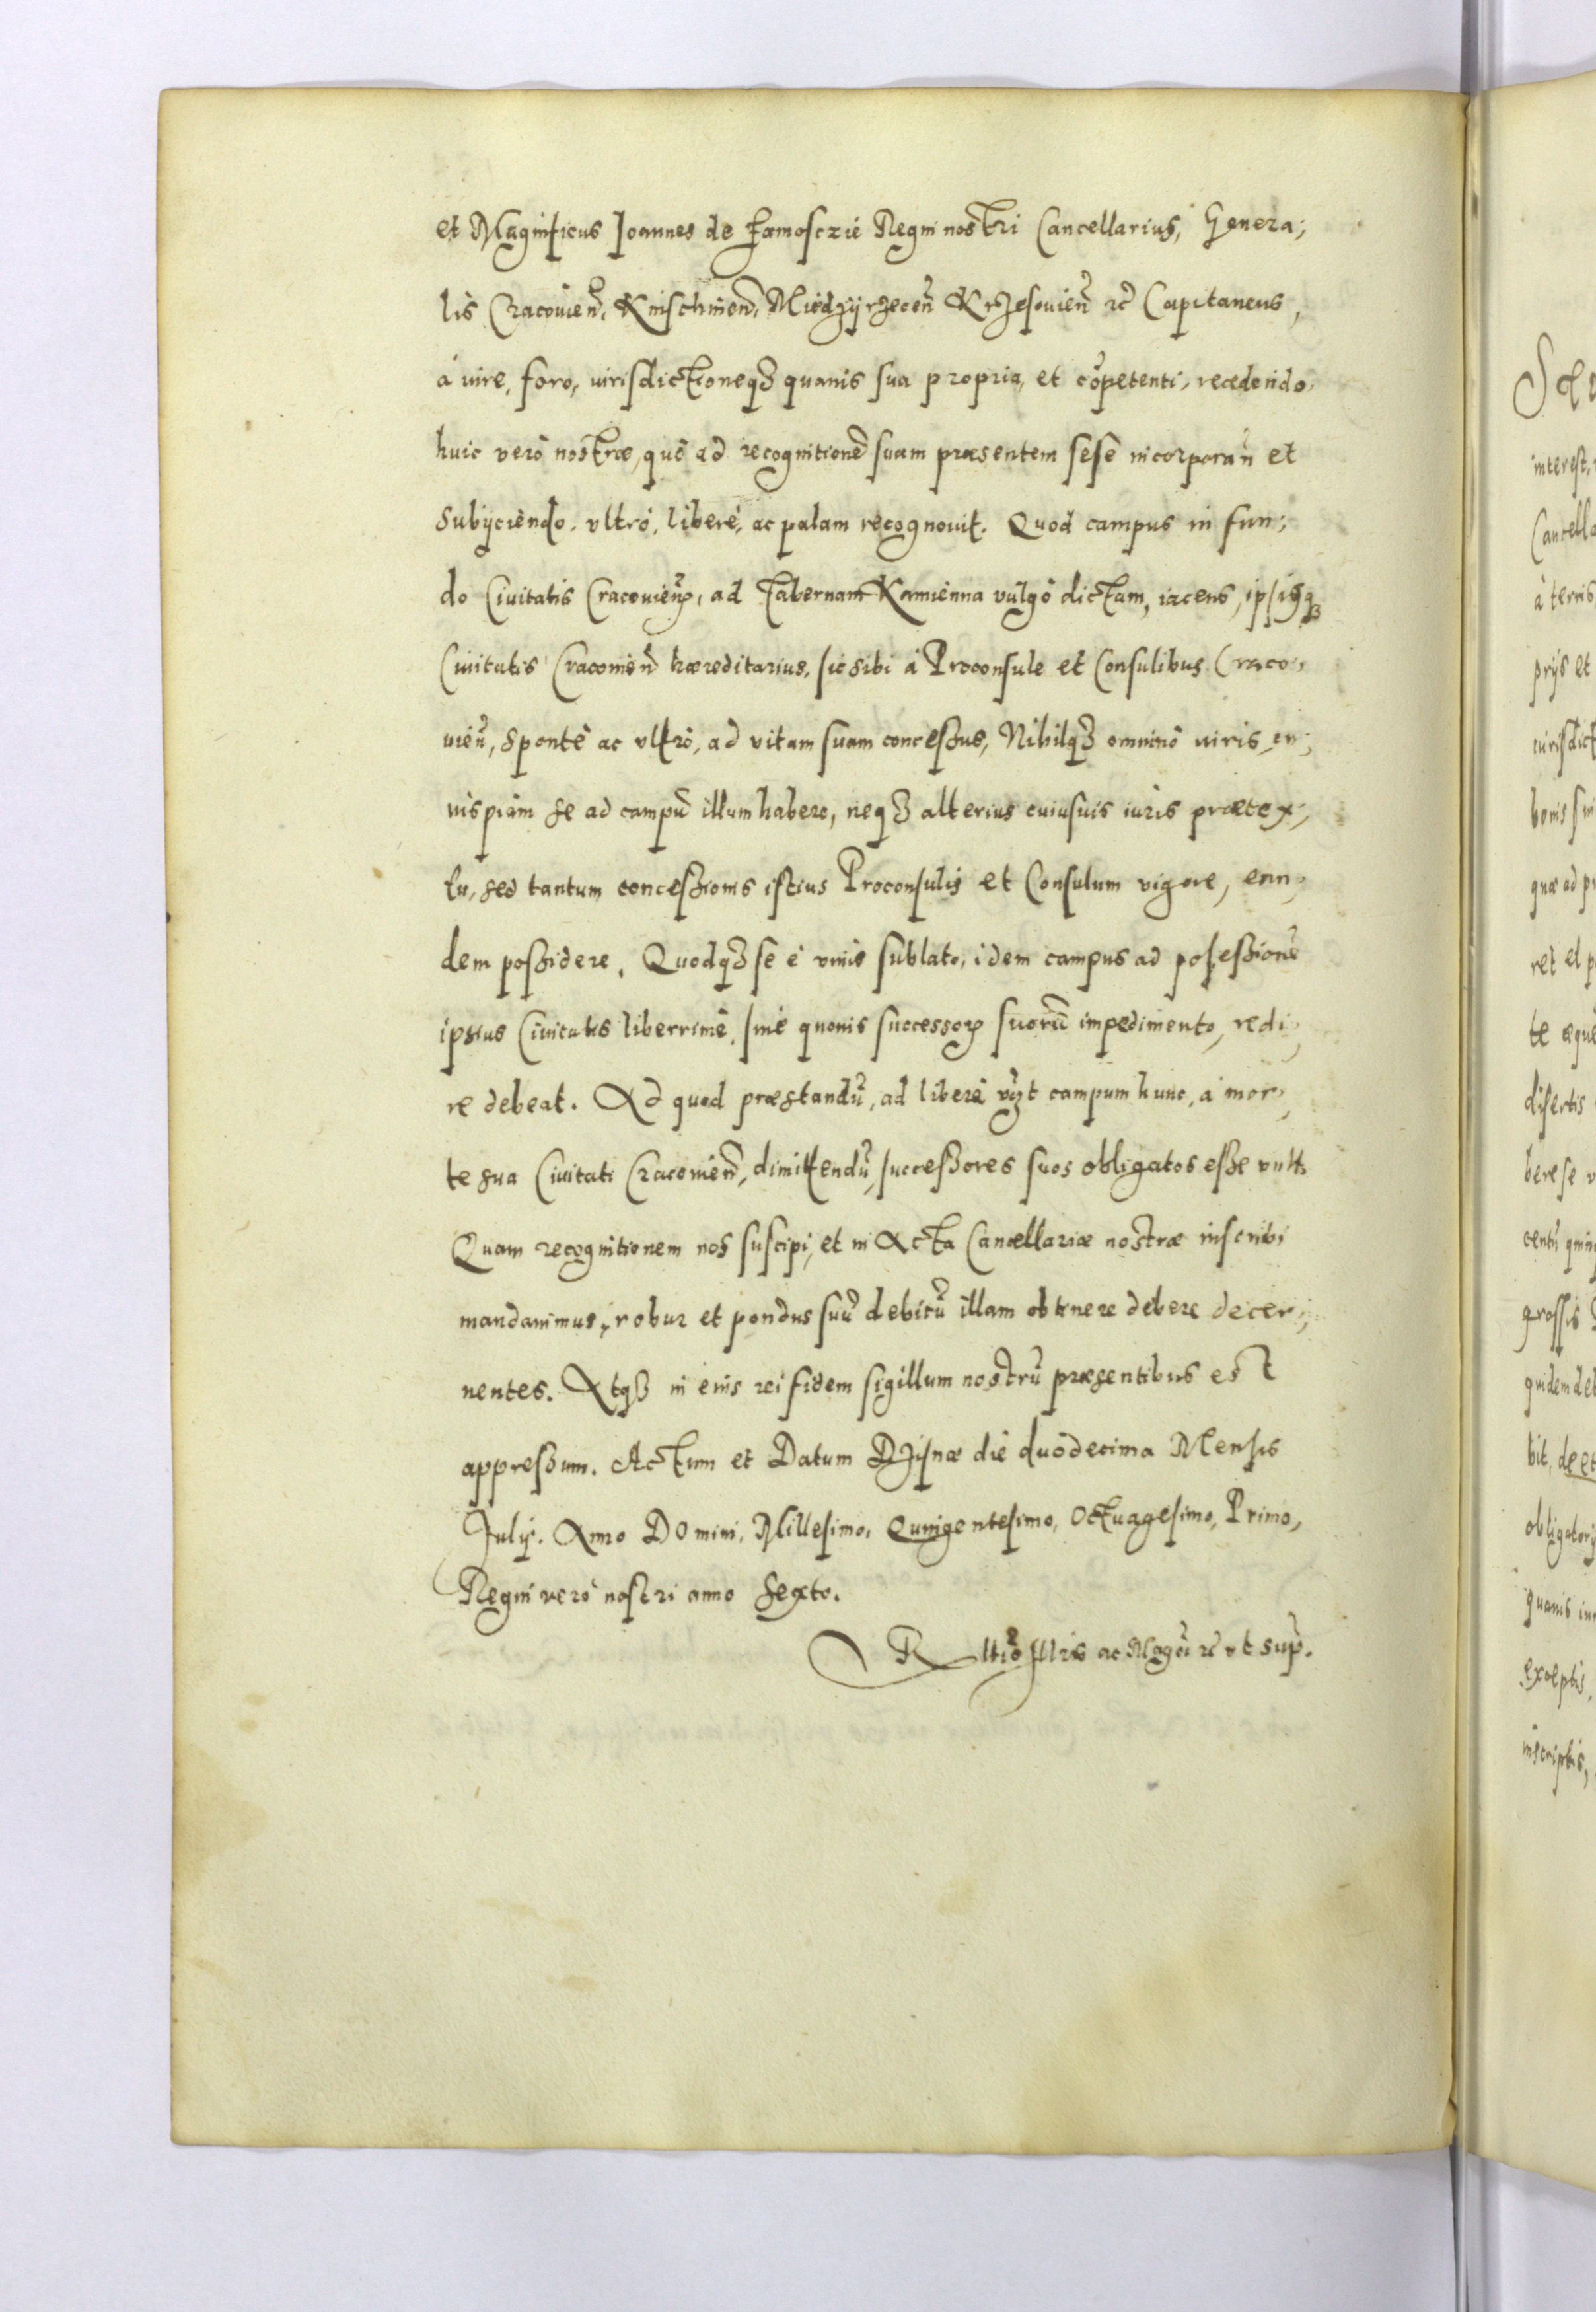 et Magnificus Joannes de Zamosczie Regni nostri Cancellarius, Genera,
lis Cracovieñ, Knischineñ, Miedzÿrzeceñ Krzesovieñ rc̃ Capitaneus,
à iure, foro, iurisdictioneqȝ quauis sua propria, et cõpetenti, recedendo,
huic verò nostræ, quò ad recognitionẽ suam præsentem sese incorporañ et
Subijciendo, vltrò, liberè, ac palam recognouit. Quod campus in fun,
do Ciuitatis Cracovieñ, ad Tabernam Kamienna vulgò dictam, iacens, ipsisqȝ
Ciuitatis Cracovieñ hæreditarius, sic sibi à Proconsule et Consulibus Craco,
vieñ, Spontè ac vltrò, ad vitam suam conceſsus, Nihilqȝ omninò iuris, cu,
iuspiam se ad campũ illum habere, neqȝ alterius cuiusuis iuris prætex,
tu, sed tantum conceſsionis istius Proconsulis et Consulum vigore, eun,
dem poſsidere. Quodqȝ se è viuis sublato, idem campus ad poſseſsionẽ
ipsius Ciuitatis liberrimè, sinè quouis successoꝝ suorũ impedimento, redi,
re debeat. Ad quod præstandũ, ad liberè vꝫt campum hunc, à mor,
te sua Ciuitati Cracovieñ, dimittendũ, succeſsores suos obligatos eſse vult.
Quam recognitionem nos suscipi, et in Acta Cancellariæ nostræ inscribi
mandauimus, robur et pondus suũ debitũ illam obtinere debere decer,
nentes. Atqȝ in eius rei fidem sigillum nostrũ præsentibus est
appreſsum. Actum et Datum Dzisnæ die duodecima Mensis
Julij. Anno Domini, Millesimo, Quingentesimo, Octuagesimo, Primo,
Regni verò nostri anno Sexto.
Rltiõ Jllris ac Magci rc̃ vt sup̃.